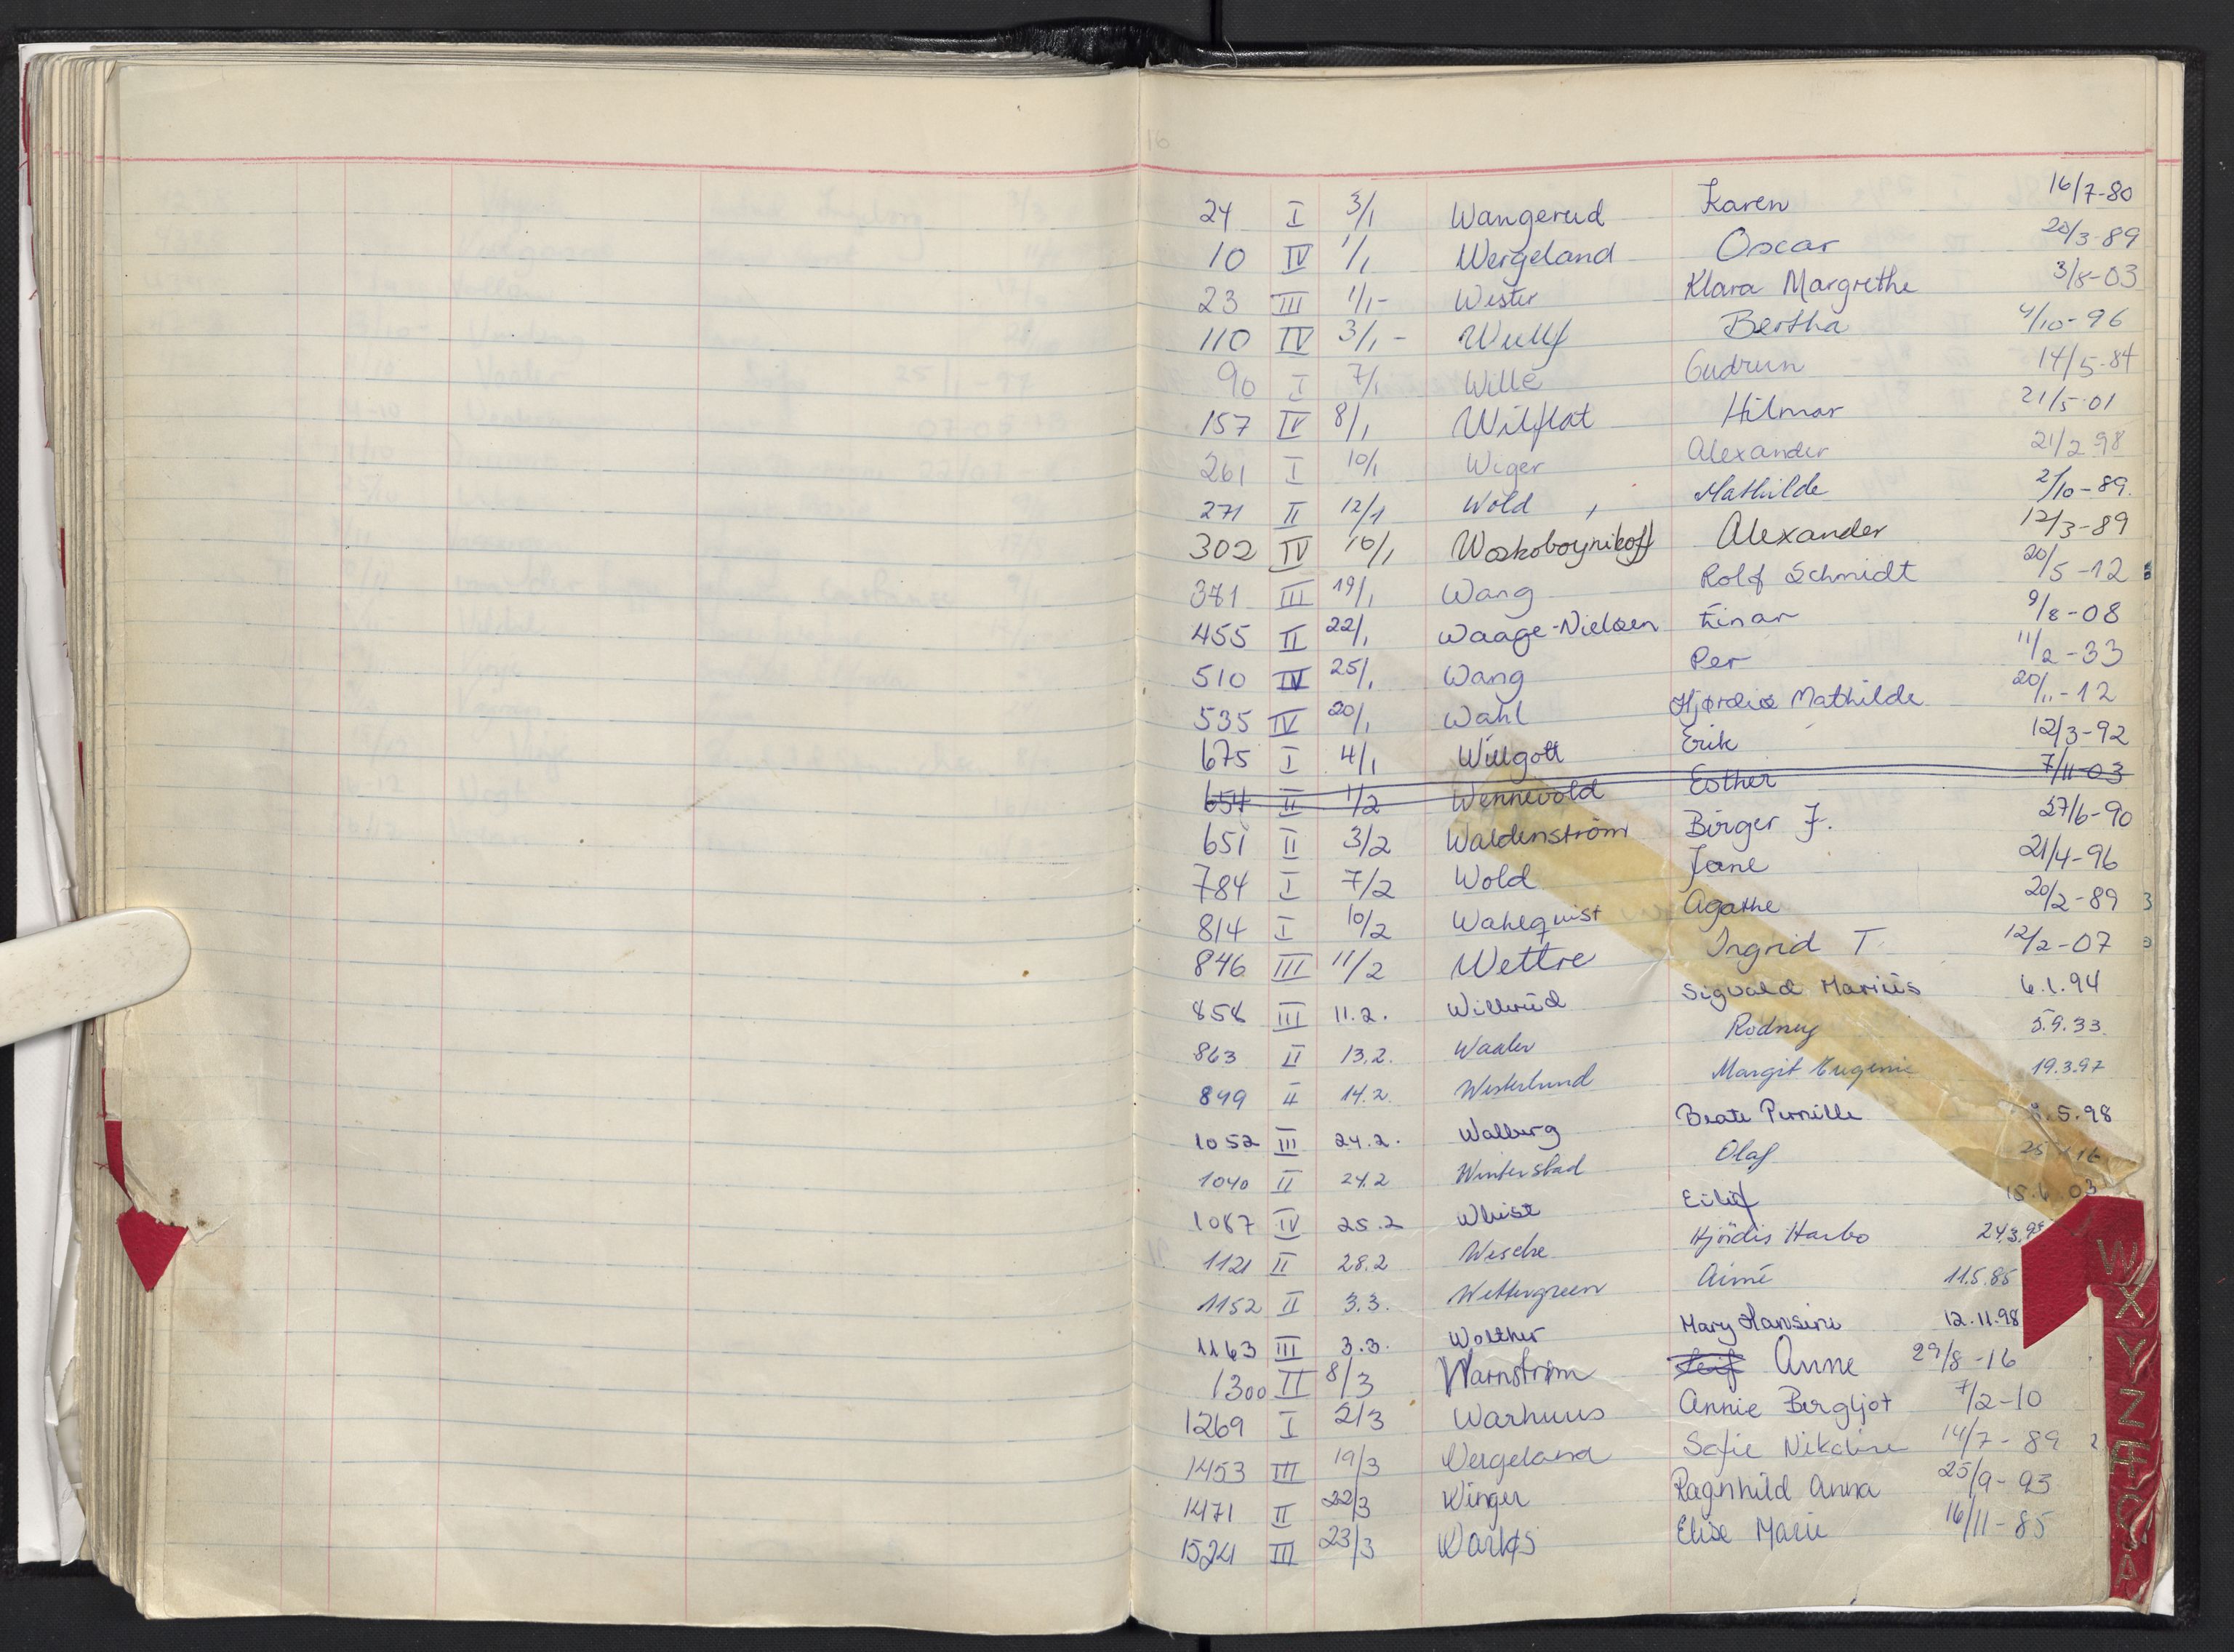 16
24 I 3/1 Wangerud Karen 16/7-80
10 IV 1/1 Wergeland Oscar 20/3-89
23 III 1/1- Wester Klara Margrethe 3/8-03
110 IV 3/1- Wulff Bertha 4/10-96
90 I 7/1 Wille Gudrun 14/5-84
157 IV 8/1 Wilflat Hilmar 21/5-01
261 I 10/1 Wiger Alexander 21/2 98
271 II 12/1 Wold Mathilde 2/10-89.
302 IV 10/1 Woskoboynikoff Alexander 12/3-89
381 III 19/1 Wang Rolf Schmidt 20/5-12
455 II 22/1 Waage-Nielsen Einar 9/8-08
510 IV 25/1 Wang Per 11/2-33
535 IV 20/1 Wahl Hjørdis Mathilde 20/11-12
675 I 4/1 Willgott Erik 12/3-92
654 II 1/2 Wennevold Esther 7/11-03
651 II 3/2 Waldenstrøm Birger J. 27/6-90
784 I 7/2 Wold Jane 21/4-96
814 I 10/2 Wahlquist Agathe 20/2-89 3
846 III 11/2 Wettre Ingrid T. 12/2-07
858 III 11.2. Willerud Sigvald Marius 6.1.94
863 II 13.2. Waaler Rodney 5.9.33
849 II 14.2. Westerlund Margit Eugenie 19.3.97
1052 III 24.2. Walberg Beate Pernille .5.98
1040 II 24.2 Winterstad Olaf 25 16
1087 IV 25.2 Whist Eilif 15.6 03
1121 II 28.2 Wesche Hjördis Harbo 24.3.9
1152 II 3.3. Wettergreen Aimé 11.5.85
1163 III 3.3. Wolther Mary Hansine 12.11.98
1300 II 8/3 Warnstrøm Leif Anne 29/8-16
1269 I 2/3 Warhuus Annie Bergljot 7/2-10
1453 III 19/3 Wergeland Sofie Nikoline 14/7-89 2
1471 II 22/3 Winger Ragnhild Anna 25/9-93
1524 III 23/3 Elise Marie 16/11-85
W
X
Y
Z
Æ
Ø
Å